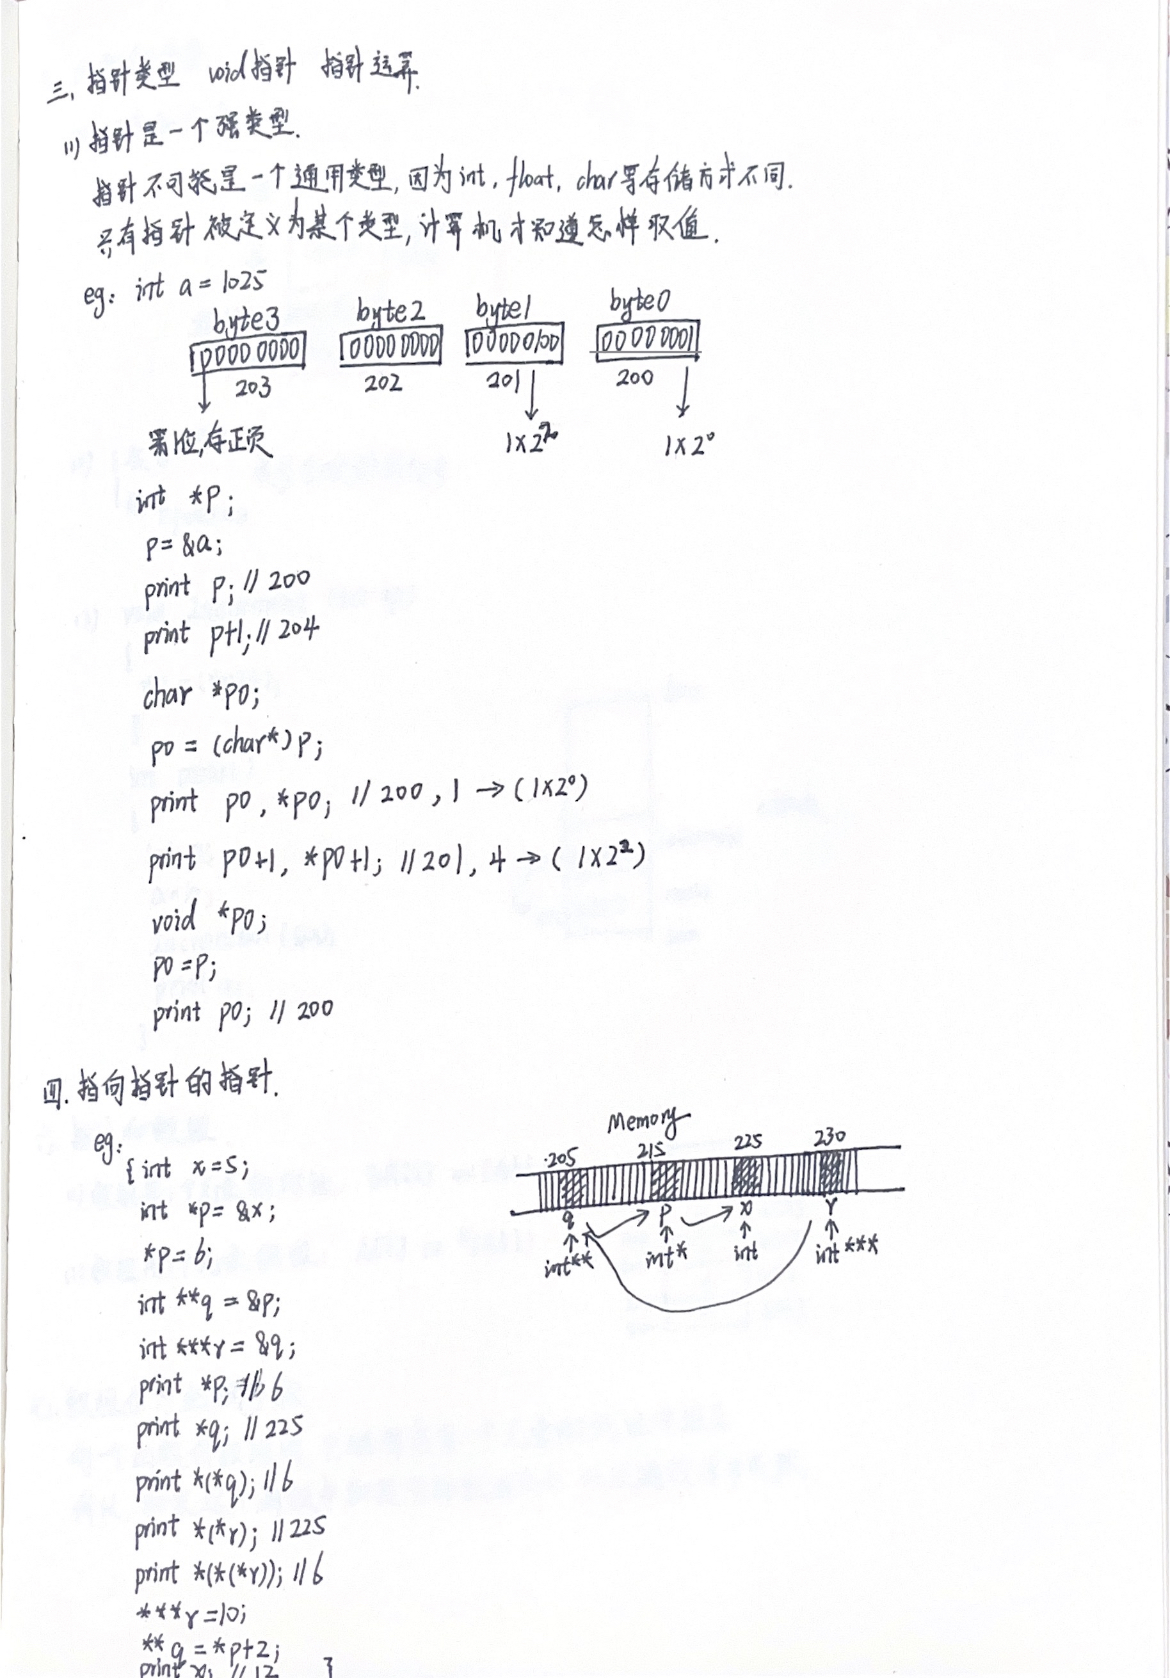 三、指针类型 void指针 指针运算.
(1) 指针是一个强类型.
指针不可能是一个通用类型,因为int, float, char等存储方式不同.
只有指针被定义为某个类型,计算机才知道怎样取值.
eg: int a = 1025
byte3 byte2 byte1 byte0
00000000 00000000 00000100 00000001
203 202 201 200
符位,存正负 1×2¹⁰ 1×2⁰
int *p;
p=&a;
print p; // 200
print p+1; // 204
char *p0;
p0 = (char*)p;
print p0, *p0; // 200, 1 → (1×2⁰)
print p0+1, *p0+1; // 201, 4 → (1×2²)
void *p0;
p0=p;
print p0; // 200
四. 指向指针的指针.
eg:
{ int x=5;
int *p= &x;
*p=6;
int **q = &p;
int ***r = &q;
print *p; //6
print *q; // 225
print *(*q); //6
print *(*r); // 225
print *(*(*r)); //6
***r=10;
**q = *p+2;
print x; // 12 }
Memory
205 215 225 230
q p x r
int** int* int int***